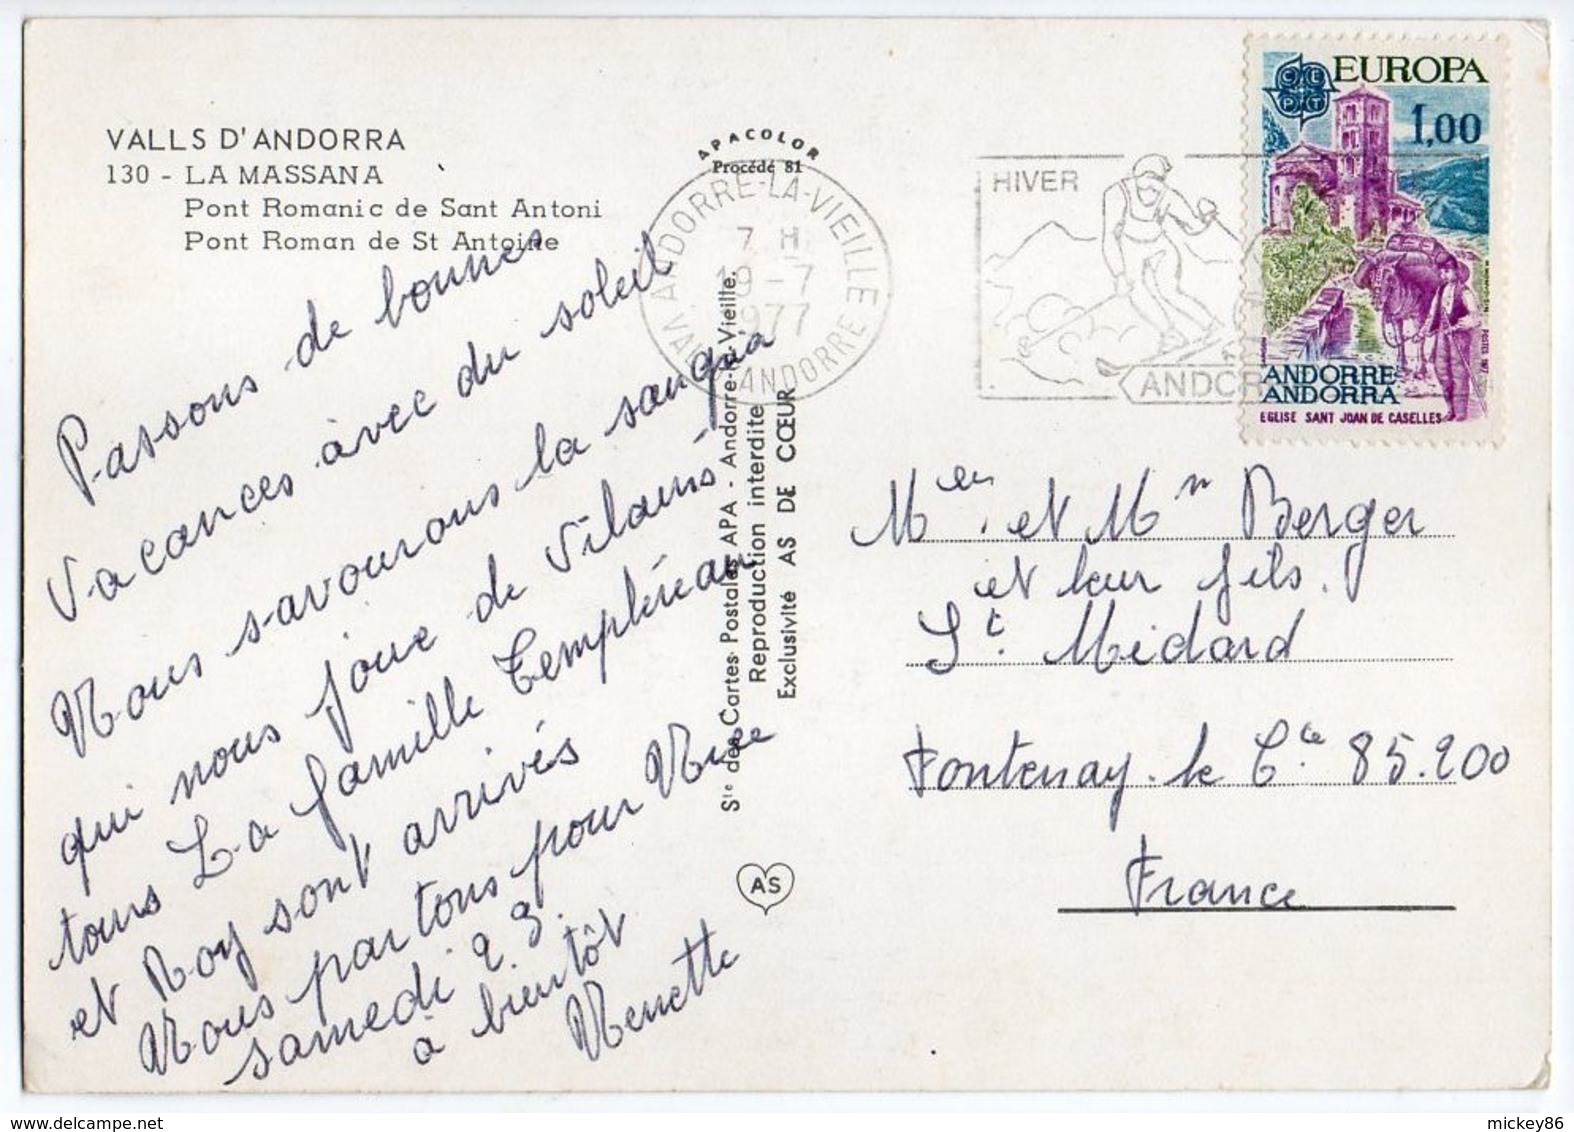 VALLS D'ANDORRA
130 - LA MASSANA
Pont Romanic de Sant Antoni
Pont Roman de St Antoine
Passons de bonnes
vacances avec du soleil
Nous savourons la sangria
qui nous joue de vilains
tours La famille Templéreau
et Roy sont arrivés
Nous partons pour Nice
samedi 23.
à bientôt
Nenette
APACOLOR
Procédé 81
Sté des Cartes Postales APA - Andorre-la-Vieille.
Reproduction interdite
Exclusivité AS DE CŒUR
AS
ANDORRE-LA-VIEILLE
7 H
19-7
1977
ANDORRE
HIVER
ANDOR
CEPT
EUROPA
1,00
ANDORRE
ANDORRA
EGLISE SANT JOAN DE CASELLES
et Mr Berger
et leur fils.
St. Médard
Fontenay-le Cte 85.200
France
mickey86